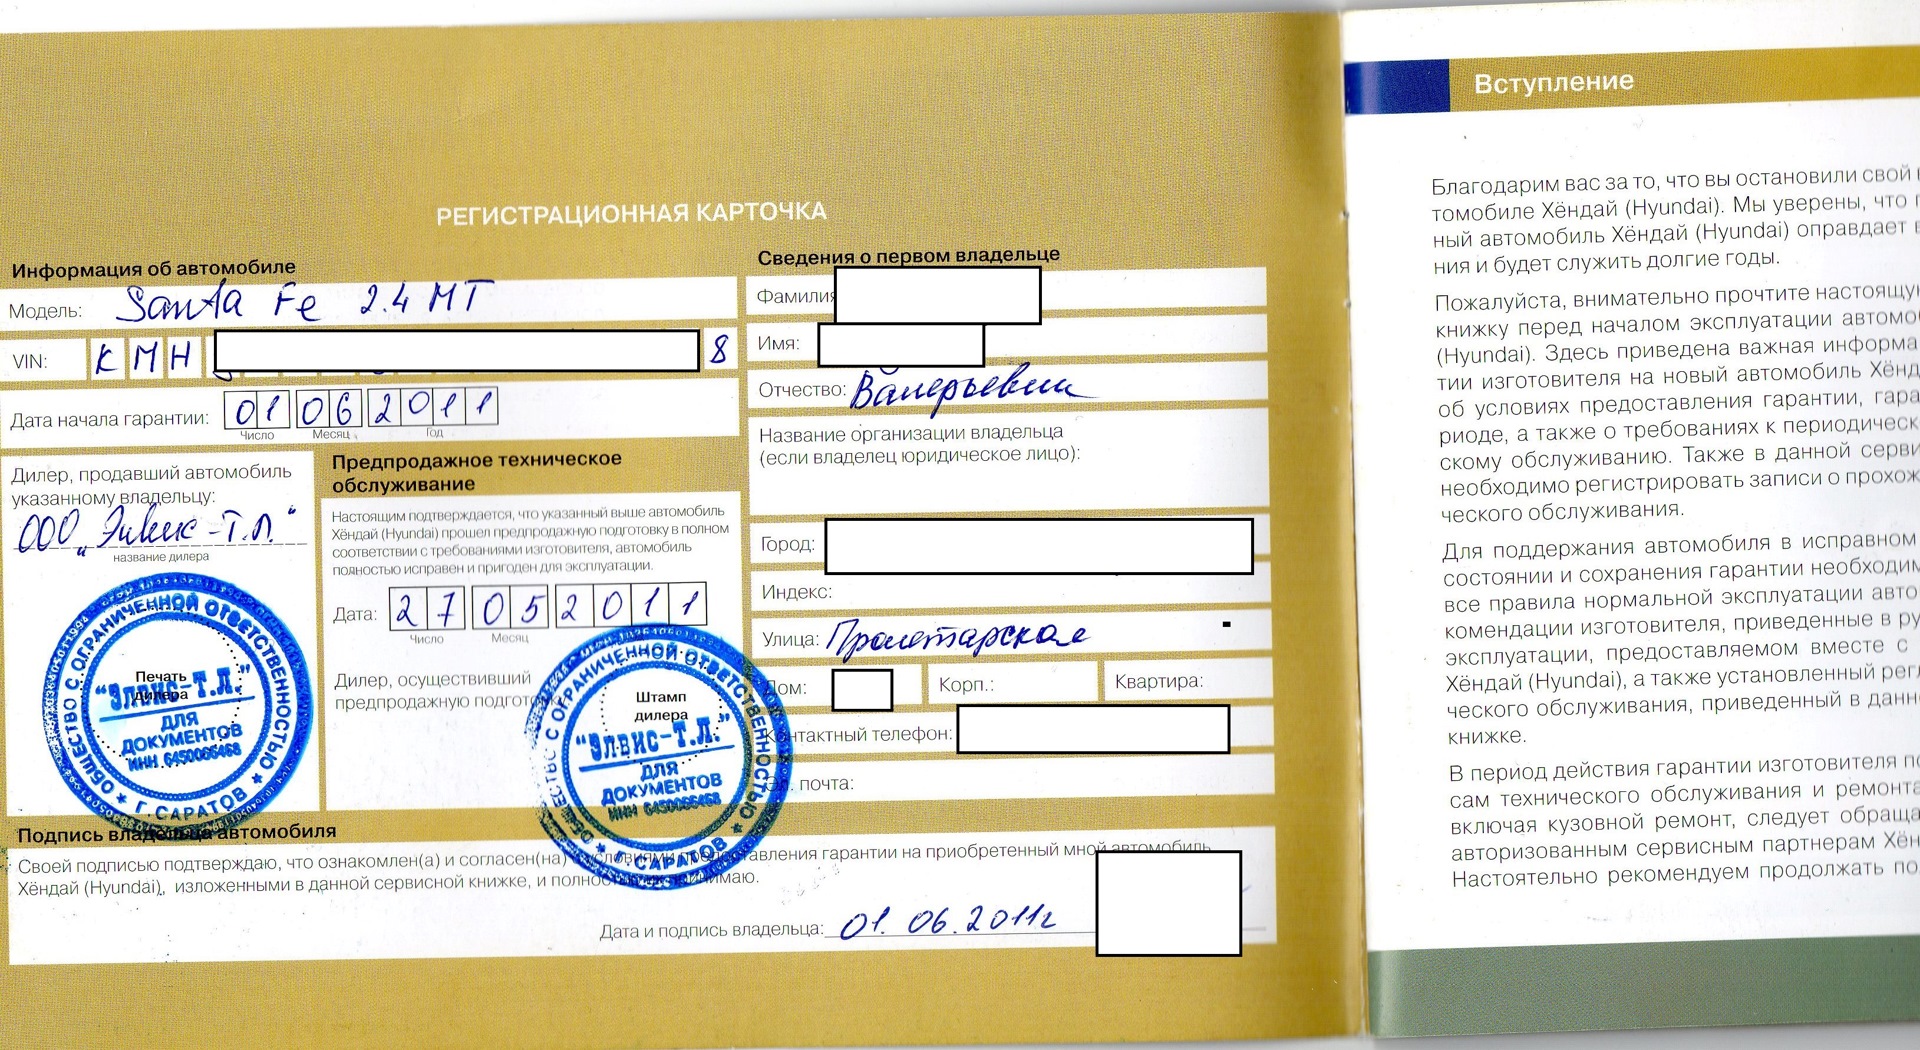 РЕГИСТРАЦИОННАЯ КАРТОЧКА
Информация об автомобиле
Модель: Santa Fe 2.4 MT
VIN: K M H 8
Дата начала гарантии: 01 06 2011
Число Месяц Год
Дилер, продавший автомобиль
указанному владельцу:
ООО „Элвис-Т.Л."
название дилера
Печать
дилера
ОБЩЕСТВО С ОГРАНИЧЕННОЙ ОТВЕТСТВЕННОСТЬЮ
"ЭЛВИС-Т.Л."
ДЛЯ
ДОКУМЕНТОВ
ИНН 6450066468
Г. САРАТОВ
Предпродажное техническое
обслуживание
Настоящим подтверждается, что указанный выше автомобиль
Хёндай (Hyundai) прошел предпродажную подготовку в полном
соответствии с требованиями изготовителя, автомобиль
полностью исправен и пригоден для эксплуатации.
Дата: 27 05 2011
Число Месяц
Дилер, осуществивший
предпродажную
Штамп
дилера
ОБЩЕСТВО С ОГРАНИЧЕННОЙ ОТВЕТСТВЕННОСТЬЮ
"ЭЛВИС-Т.Л."
ДЛЯ
ДОКУМЕНТОВ
ИНН 6450066468
Г. САРАТОВ
Сведения о первом владельце
Фамилия
Имя:
Отчество: Валерьевич
Название организации владельца
(если владелец юридическое лицо):
Город:
Индекс:
Улица: Пролетарская
Дом: Корп.: Квартира:
Контактный телефон:
Эл. почта:
Подпись владельца автомобиля
Своей подписью подтверждаю, что ознакомлен(а) и согласен(на) с условиями предоставления гарантии на приобретенный мной автомобиль
Хёндай (Hyundai), изложенными в данной сервисной книжке, и полностью их принимаю.
Дата и подпись владельца: 01.06.2011г
Вступление
Благодарим вас за то, что вы остановили свой
томобиле Хёндай (Hyundai). Мы уверены, что
ный автомобиль Хёндай (Hyundai) оправдает
ния и будет служить долгие годы.
Пожалуйста, внимательно прочтите настоящую
книжку перед началом эксплуатации автомоб
(Hyundai). Здесь приведена важная информа
тии изготовителя на новый автомобиль Хёнд
об условиях предоставления гарантии, гара
риоде, а также о требованиях к периодическ
скому обслуживанию. Также в данной серви
необходимо регистрировать записи о прохож
ческого обслуживания.
Для поддержания автомобиля в исправном
состоянии и сохранения гарантии необходим
все правила нормальной эксплуатации авто
комендации изготовителя, приведенные в ру
эксплуатации, предоставляемом вместе с
Хёндай (Hyundai), а также установленный рег
ческого обслуживания, приведенный в данн
книжке.
В период действия гарантии изготовителя по
сам технического обслуживания и ремонта
включая кузовной ремонт, следует обраща
авторизованным сервисным партнерам Хён
Настоятельно рекомендуем продолжать по